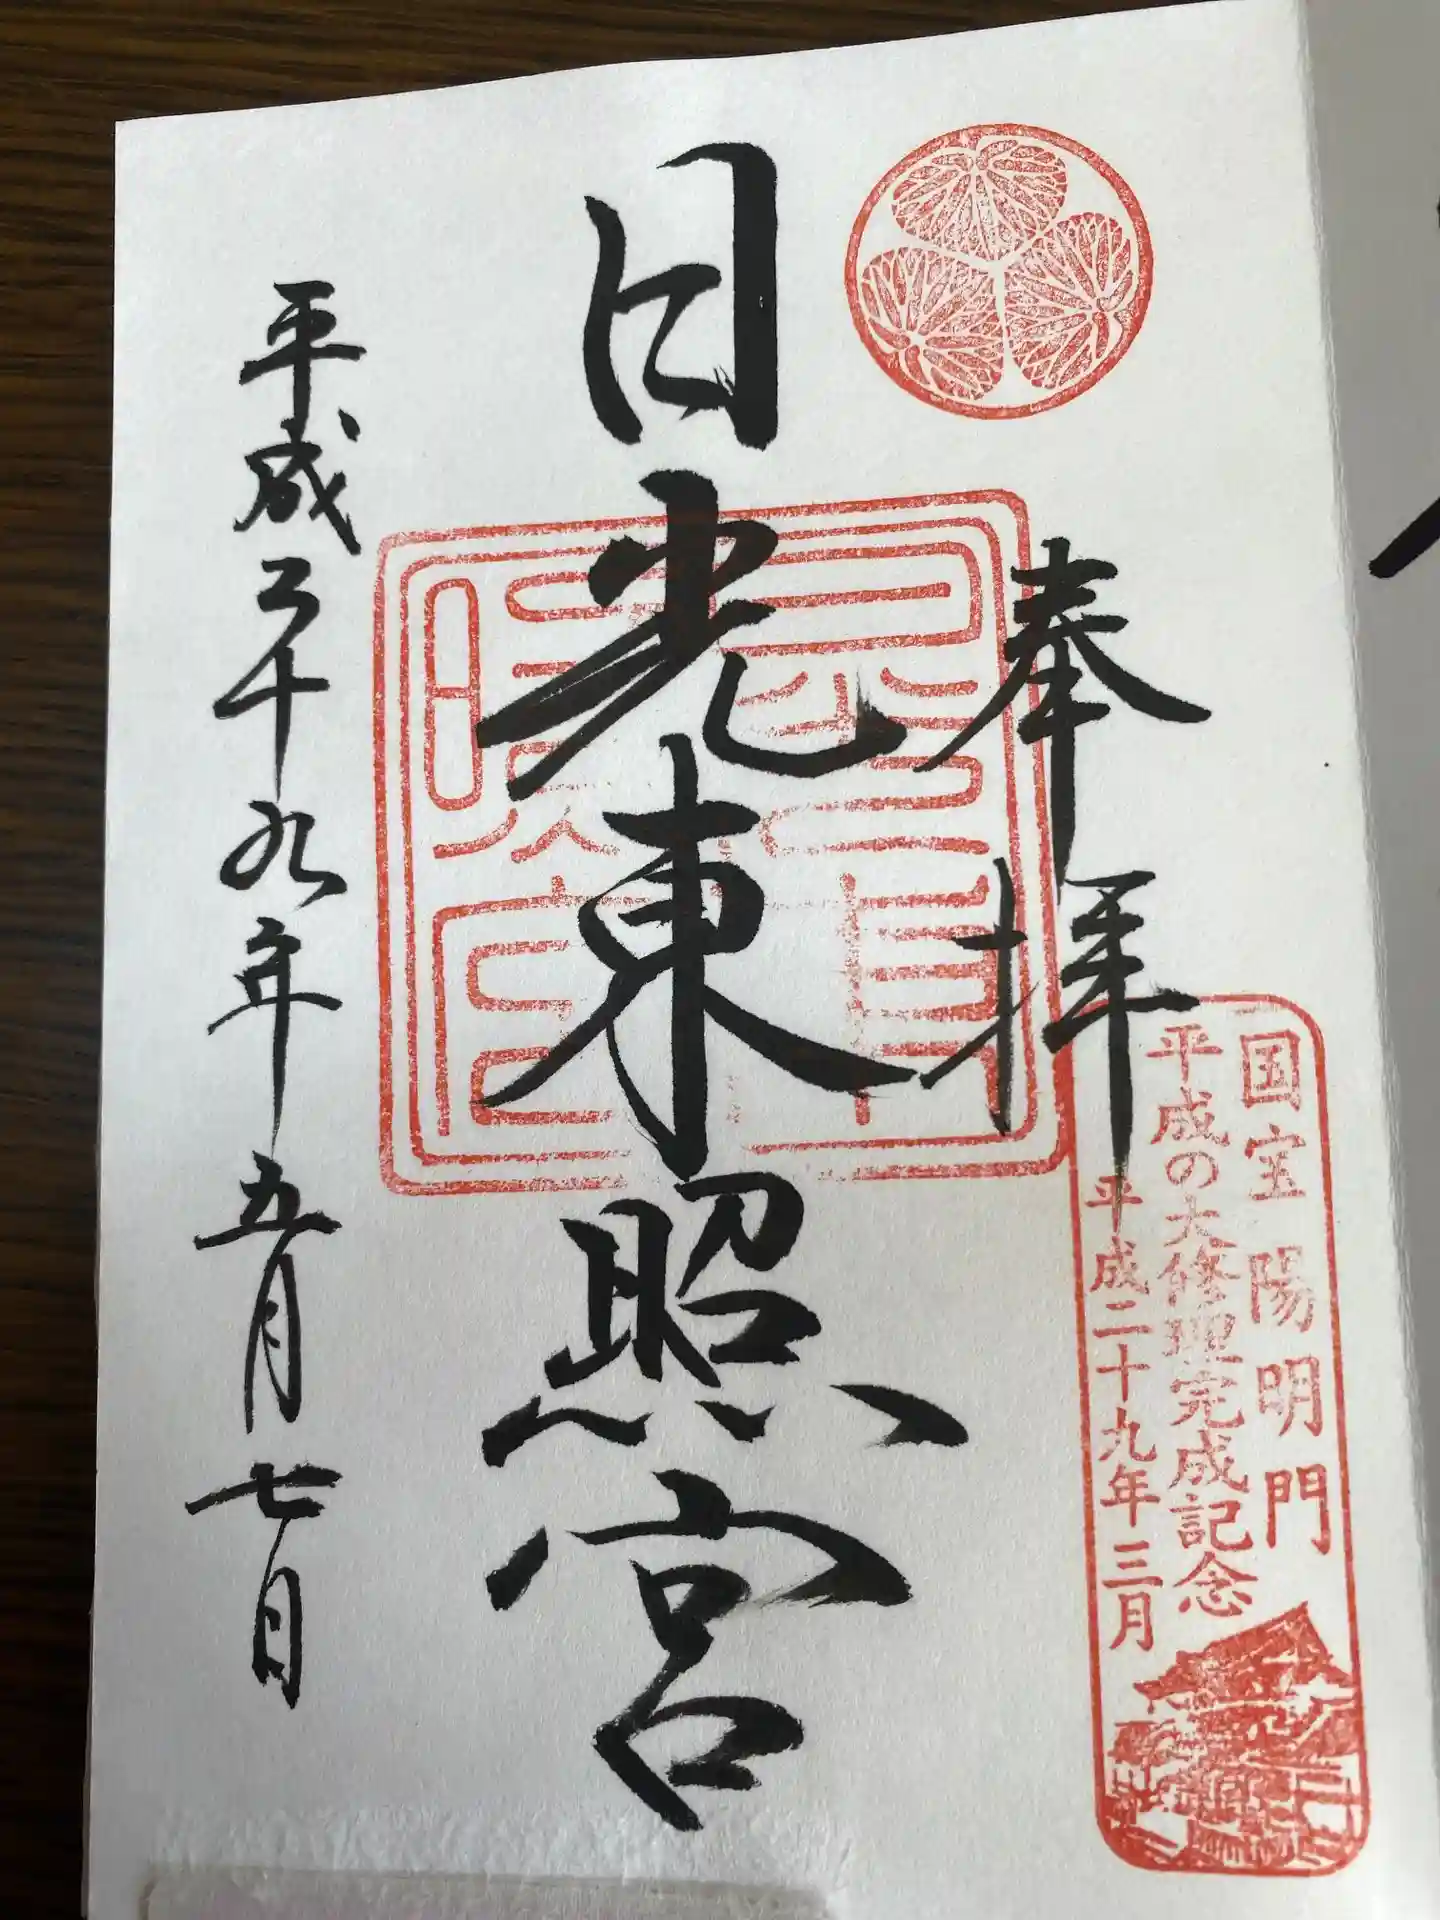 奉拝
国宝 陽明門
平成の大修理完成記念
平成二十九年三月
日光東照宮
平成二十九年五月七日